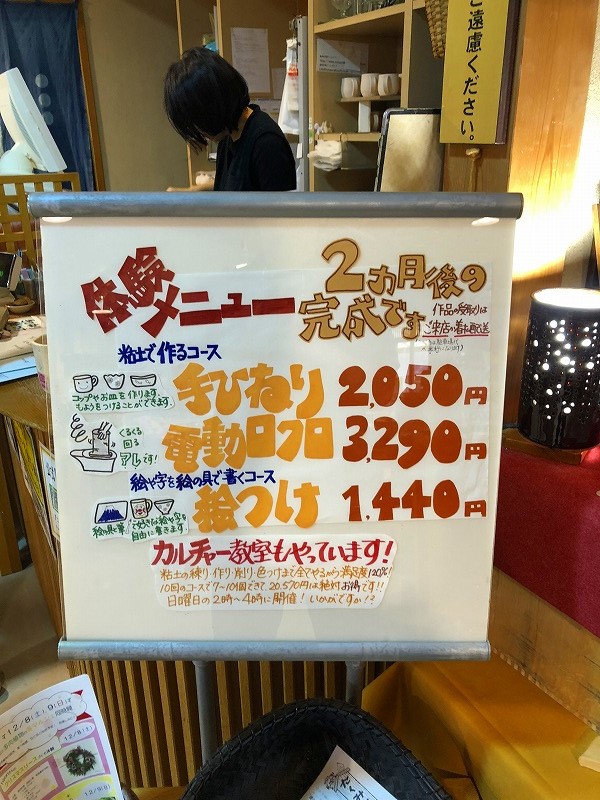 ご遠慮ください。
体験
メニュー
2カ月後の
完成です
作品の受取りは
ご来店か着払配送
粘土で作るコース
コップやお皿を作ります。
もようをつけることができます。
手びねり 2,050円
くるくる
回る
アレです!
電動ロクロ 3,290円
絵や字を絵の具で書くコース
絵の具で筆で
お好きな絵や字を
自由に書きます。
絵つけ 1,440円
カルチャー教室もやっています!
粘土の練り・作り・削り・色つけまで全てやるから満足度120%!
10回のコースで7〜10個できて20,570円は絶対お得です!!
日曜日の2時〜4時に開催!いかがですか!?
12/8(土)9(日)
12/8(土)
12/9(日)